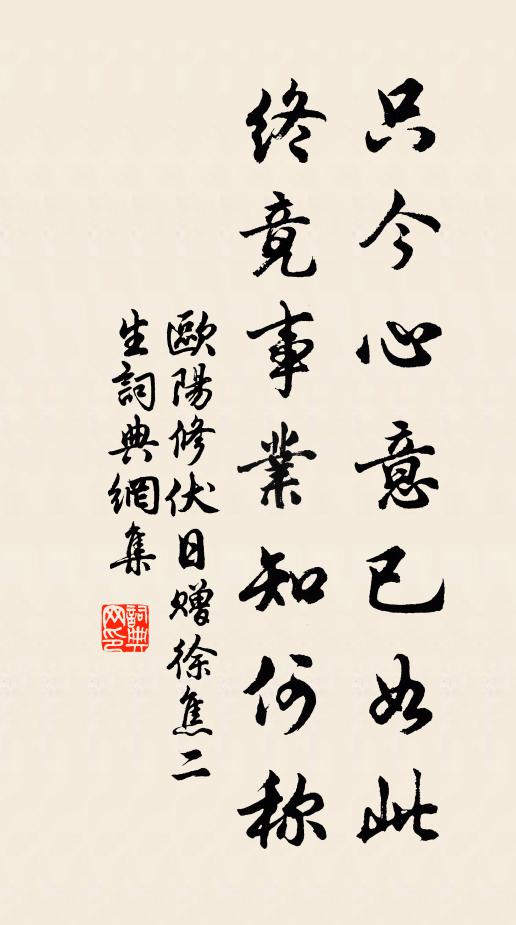 只今心意已如此
終竟事業知何称
歐陽修伏日贈徐焦二
生詞典網集
詞典
网印